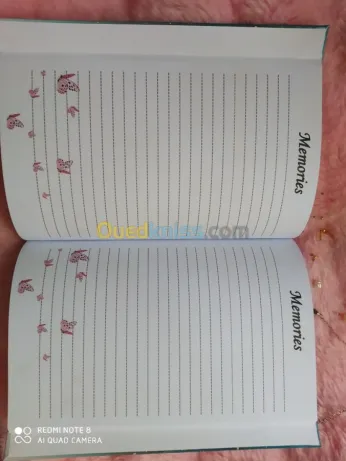 Memories
Ouedkniss.com
Memories
REDMI NOTE 8
AI QUAD CAMERA